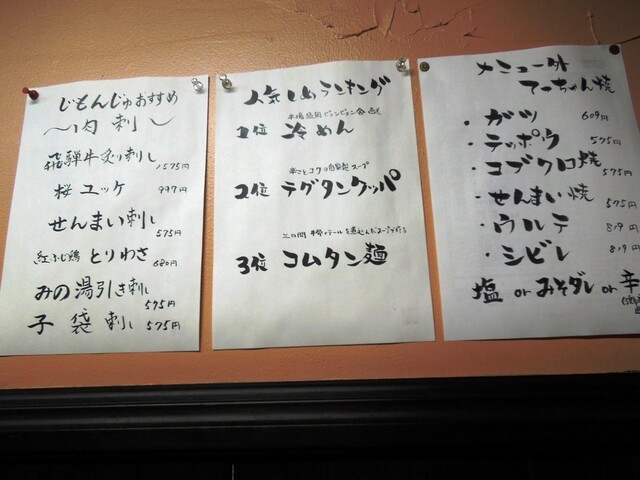 じもんじゅおすすめ
〜肉刺し〜
飛騨牛炙り刺し 1575円
桜ユッケ 997円
せんまい刺し 575円
紅ふじ鶏 とりわさ 680円
みの湯引き刺し 575円
子袋刺し 575円
人気しめランキング
1位 冷めん
スープ
2位 テグタンクッパ
3位 コムタン麺
メニュー外
てっちゃん焼
・ガツ 609円
・テッポウ 575円
・コブクロ焼 575円
・せんまい焼 575円
・ウルテ 819円
・シビレ 819円
塩 or みそダレ or 辛